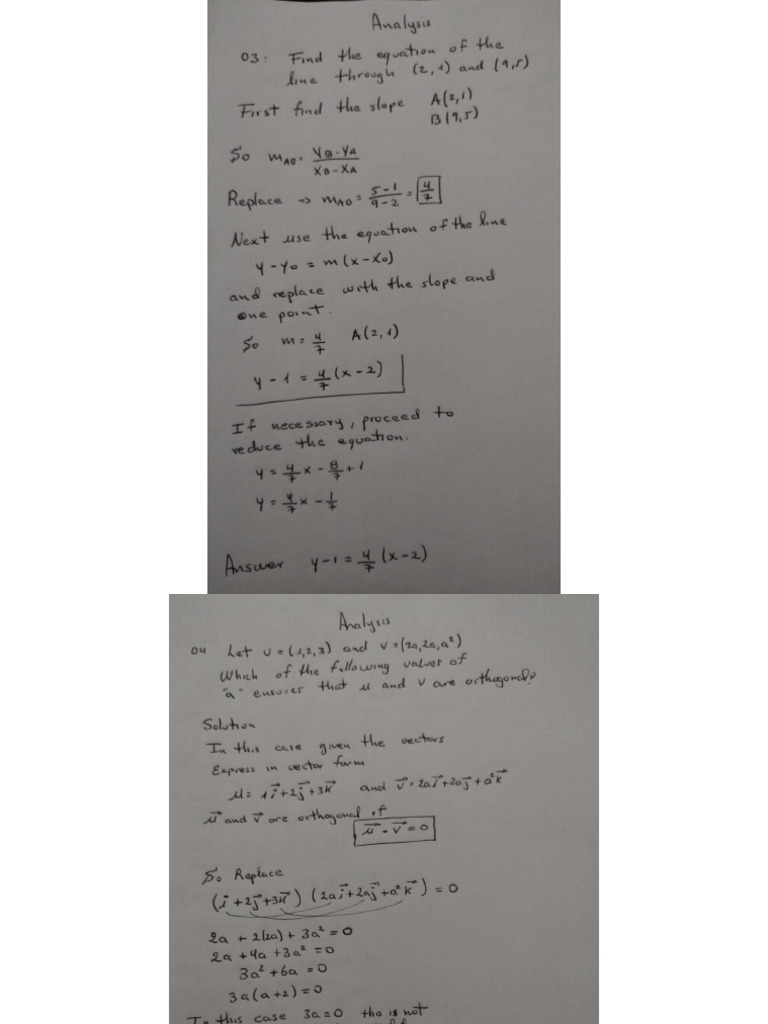 Analysis
03: Find the equation of the
line through (2,1) and (9,5)
First find the slope A(2,1)
B(9,5)
So m_AB = (Y_B - Y_A)/(X_B - X_A)
Replace => m_AB = (5-1)/(9-2) = 4/7
Next use the equation of the line
y - y₀ = m(x - x₀)
and replace with the slope and
one point.
So m = 4/7 A(2,1)
y - 1 = 4/7 (x - 2)
If necessary, proceed to
reduce the equation.
y = 4/7 x - 8/7 + 1
y = 4/7 x - 1/7
Answer y - 1 = 4/7 (x - 2)
Analysis
04 Let u = (1,2,3) and v = (2a,2a,a²)
Which of the following values of
"a" ensures that u and v are orthogonal?
Solution
In this case given the vectors
Express in vector form
u = 1i⃗ + 2j⃗ + 3k⃗ and v⃗ = 2ai⃗ + 2aj⃗ + a²k⃗
u⃗ and v⃗ are orthogonal if
u⃗ · v⃗ = 0
So Replace
(i⃗ + 2j⃗ + 3k⃗) (2ai⃗ + 2aj⃗ + a²k⃗) = 0
2a + 2(2a) + 3a² = 0
2a + 4a + 3a² = 0
3a² + 6a = 0
3a(a+2) = 0
In this case 3a = 0 tho is not